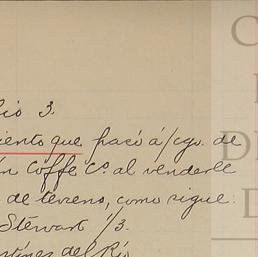 cio 3.
iento que pasó á/cgo. de
ín Coffe Co. al venderle
de terreno, como sigue:
Stewart 1/3.
artínez del Río
C
D